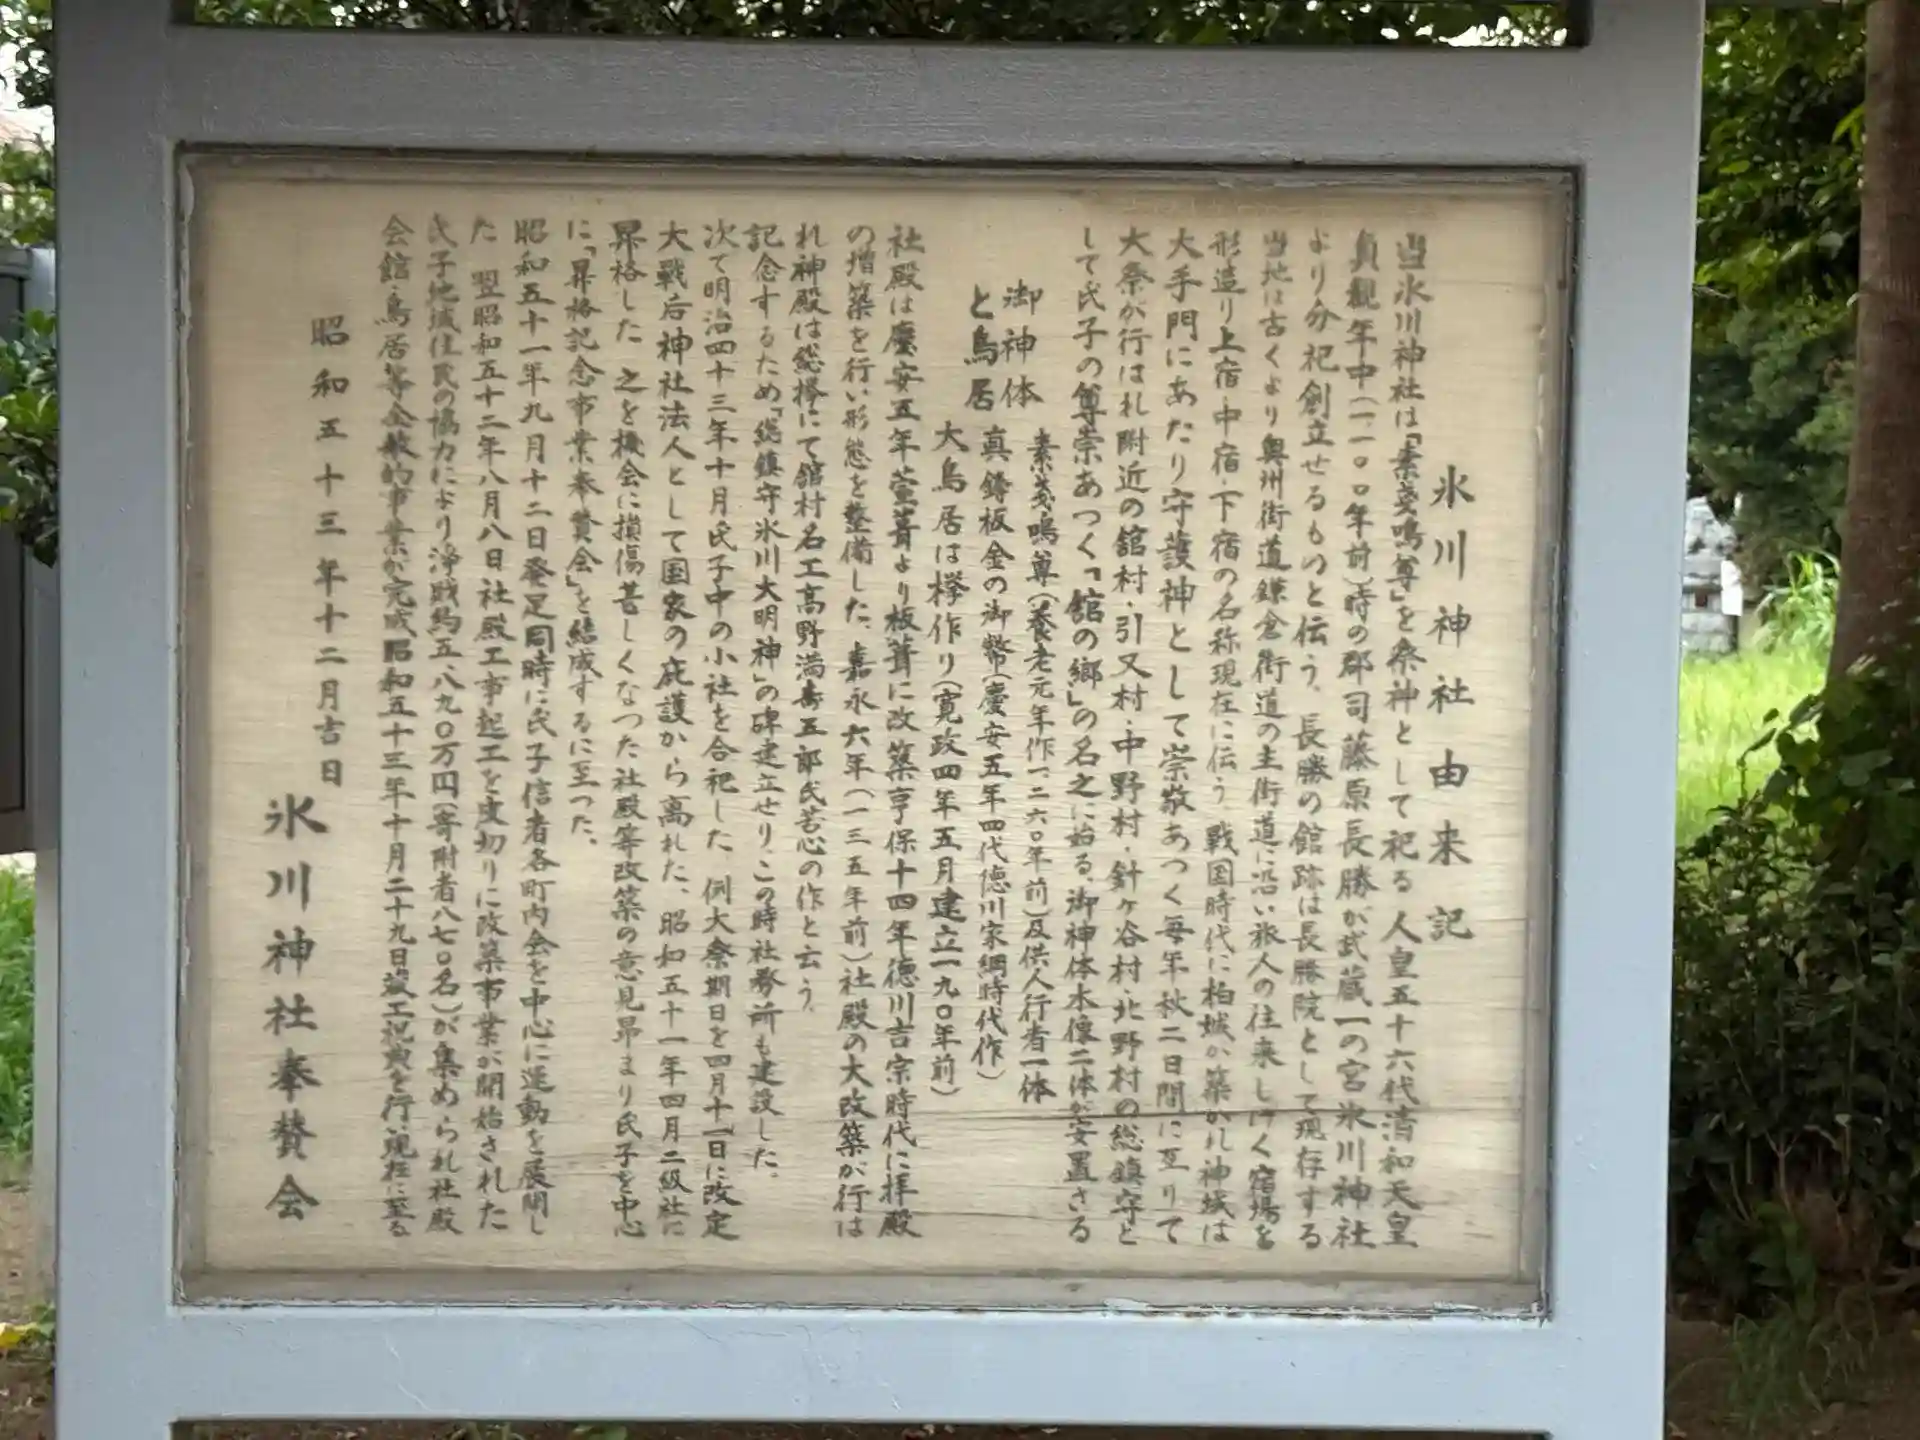 氷川神社由来記
当氷川神社は「素戔鳴尊」を祭神として祀る人皇五十六代清和天皇
貞観年中(一、一〇〇年前)時の郡司藤原長勝が武蔵一の宮氷川神社
より分祀創立せるものと伝う、長勝の館跡は長勝院として現存する
当地は古くより奥州街道鎌倉街道の主街道に沿い旅人の往来しげく宿場を
形造り上宿・中宿・下宿の名称現在に伝う、戦国時代に柏城が築かれ神域は
大手門にあたり守護神として崇敬あつく毎年秋二日間に亘りて
大祭が行はれ附近の舘村・引又村・中野村・針ヶ谷村・北野村の総鎮守と
して氏子の尊崇あつく「舘の郷」の名之に始る、御神体木像二体が安置さる
御神体
と鳥居
素戔鳴尊(養老元年作一、二六〇年前)及供人行者一体
真鍮板金の御幣(慶安五年四代徳川家綱時代作)
大鳥居は欅作り(寛政四年五月建立一九〇年前)
社殿は慶安五年萱葺より板葺に改築享保十四年徳川吉宗時代に拝殿
の増築を行い形態を整備した、嘉永六年(一三五年前)社殿の大改築が行は
れ神殿は総欅にて舘村名工高野満寿五郎氏苦心の作と云う、
記念するため「総鎮守氷川大明神」の碑建立せり、この時社務所も建設した、
次て明治四十三年十月氏子中の小社を合祀した、例大祭期日を四月十一日に改定
大戦后神社法人として国家の庇護から離れた、昭和五十一年四月二級社に
昇格した 之を機会に損傷甚しくなつた社殿等改築の意見昂まり氏子を中心
に「昇格記念市業奉賛会」を結成するに至つた、
昭和五十一年九月十二日発足同時に氏子信者各町内会を中心に運動を展開し
た 翌昭和五十二年八月八日社殿工事起工を皮切りに改築市業が開始された
氏子地域住民の協力により浄財約五、八九〇万円(寄附者八七〇名)が集められ社殿
会館・鳥居等全般的事業が完成昭和五十三年十月二十九日竣工祝典を行、現在に至る
昭和五十三年十二月吉日
氷川神社奉賛会